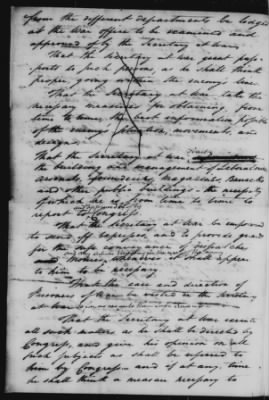 from the different departments be lodged
at the War office to be examined and
approved of by the Secretary at War.
That the Secretary at War grant pass-
ports to such persons as he shall think
proper, going within the enemy's lines
That the Secretary at War take the
necessary measures for obtaining from
time to time, the best information possible
of the enemy's situation, movements, and
designs.
That the Secretary at War direct
the building and management of Laboratories
arsenals, foundaries, magazines, Barracks
and other public buildings the necessity
of which he is from time to time to
report to Congress
That the Secretary at War be empowered
to send off expresses, and to provide guards
for the safe conveyance of dispatches
and others whenever it shall appear
to him to be necessary
That the care and direction of
Prisoners of War be vested in the Secretary
at War
That the Secretary at War execute
all such matters as he shall be directed by
Congress, and give his opinion on all
such subjects as shall be referred to
him by Congress and if at any time
he shall think a measure necessary to